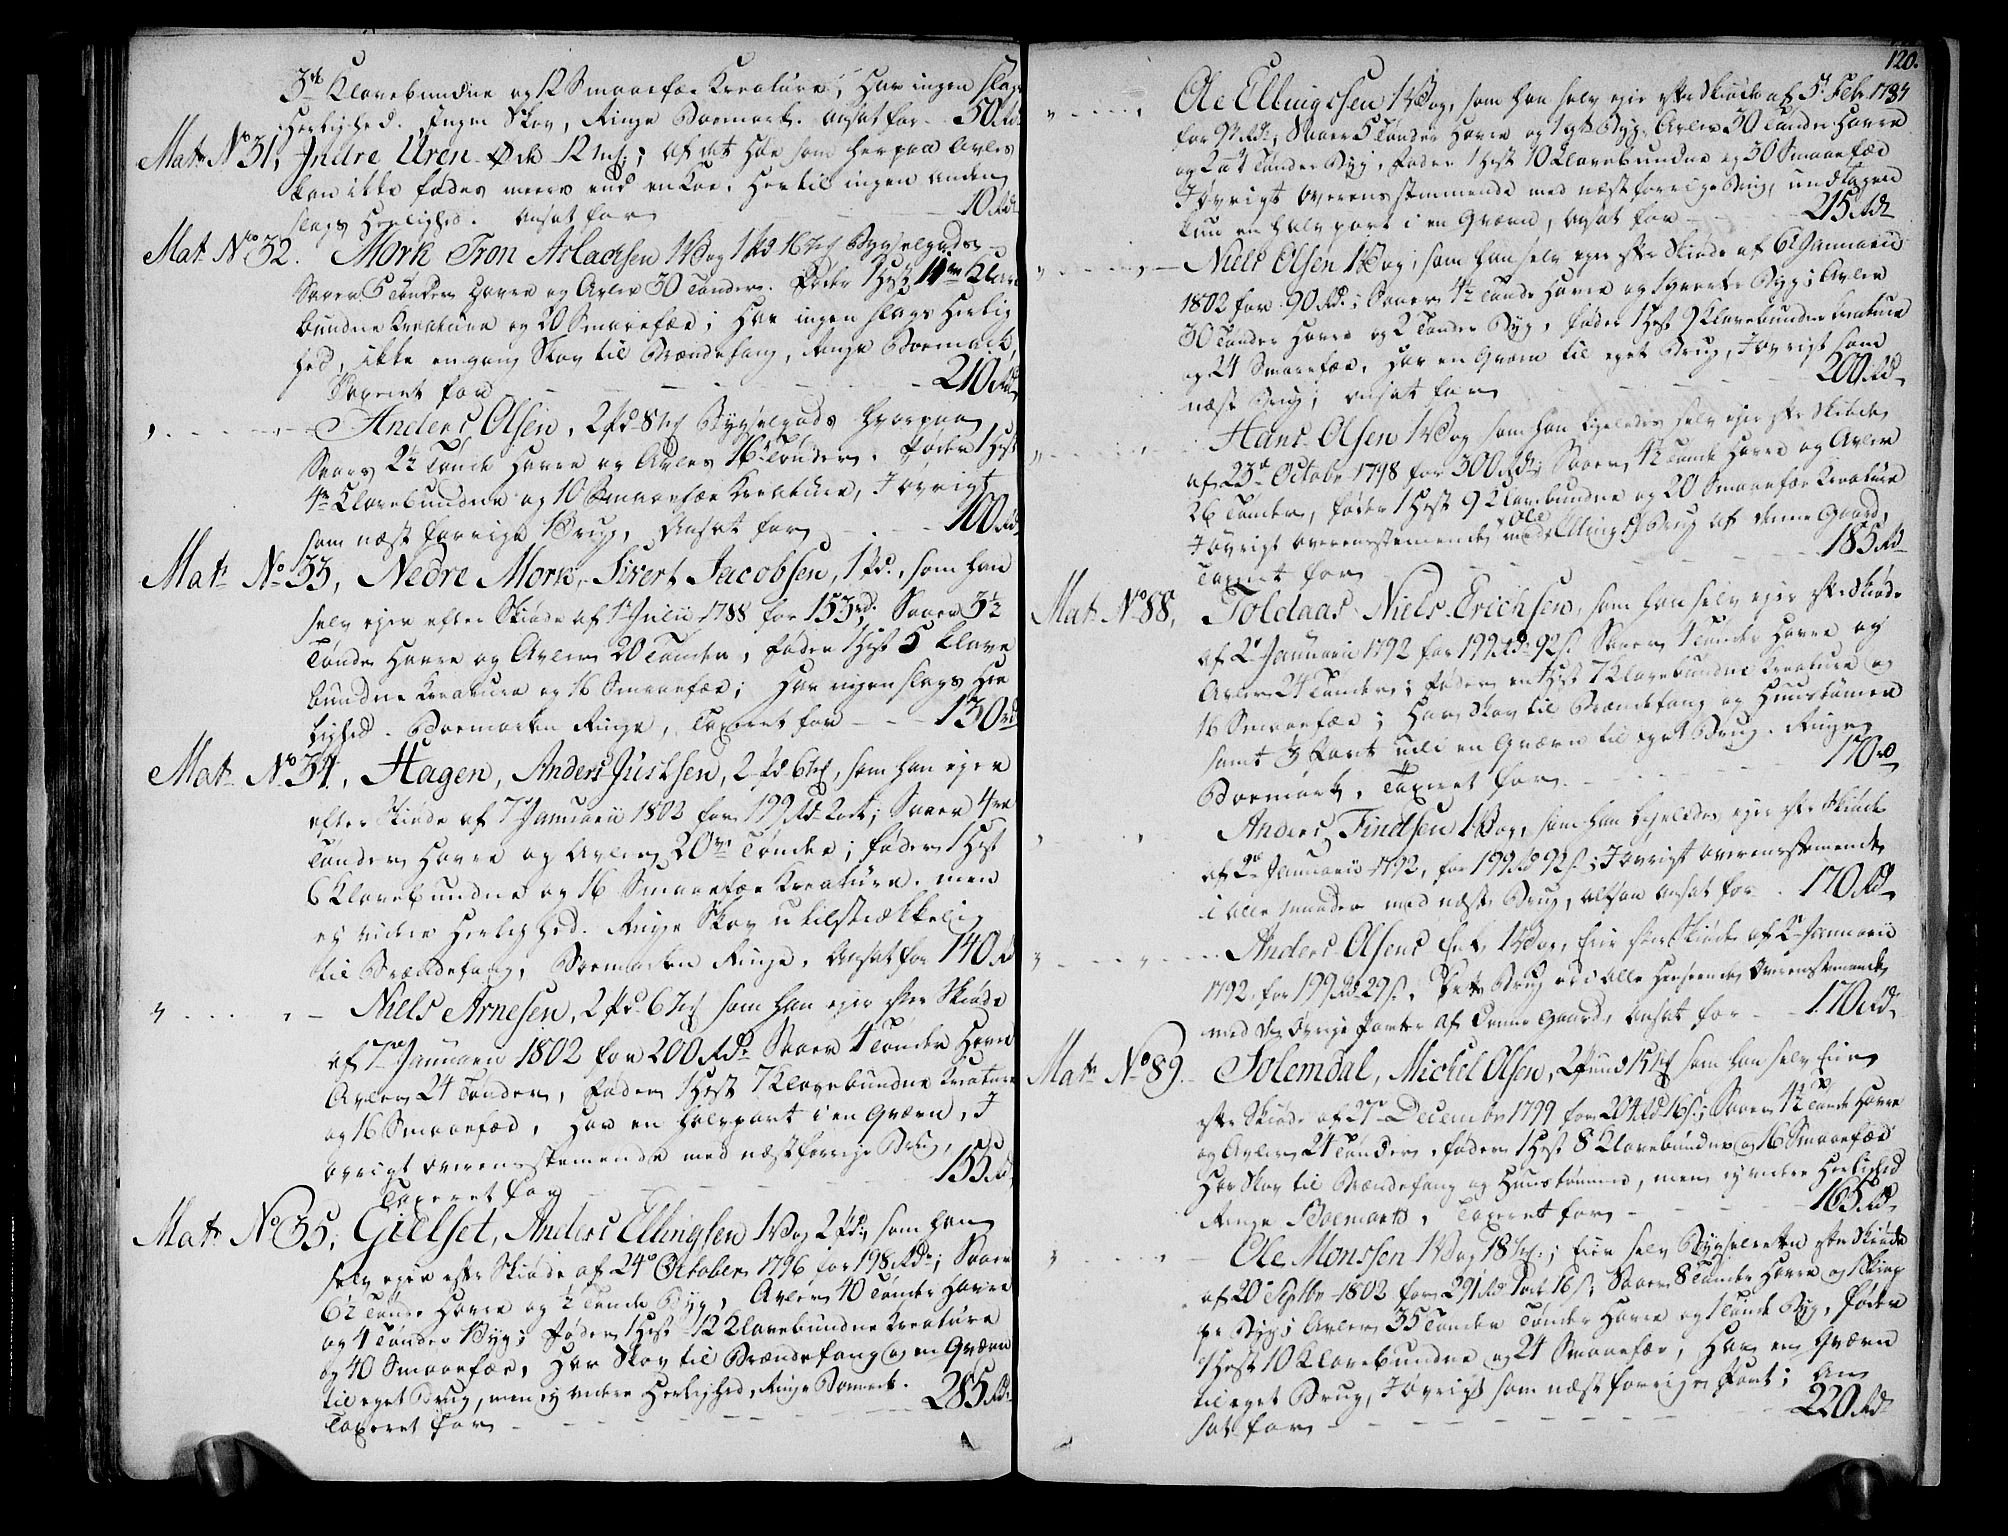 3de Klavebundne og 12 Smaaefæe Kreature, Har ingen slags
Herlighed. Ingen Skov, Ringe Boemark. Ansat for 50 Rd
Mat No 31, Indre Uren Øde 12 mk; af det Høe som herpaa Avles
kan ikke fødes meere end en Koe. Hertil ingen anden
slags Herlighed. Ansat for 10 Rdr
Mat No 32. Mork Tron Aslachsen 1 Vog 1 Pd 16 mk Bygselgods
Saaer 5 Tønder Havre og Avler 30 Tønder. Føder 1 Hest 11 Klave
bundne Kreature og 20 Smaaefæe; Har ingen slags Herlig
hed, ikke engang Skov til Brændefang, Ringe Boemark,
Taxeret for 210 Rd
Anders Olsen, 2 Pd 8 mk Bygselgods hvorpaa
Saaes 2½ Tønde Havre og Avles 16 Tønder. Føder 1 Hest
4re Klavebundne og 10 Smaaefæe Kreature, I øvrigt
som næst forrige Brug, Ansat for 100 Rd
Mat No 33, Nedre Mork, Sivert Jacobsen, 1 Pd., som han
selv ejer efter Skiøde af 1 Julii 1788 for 153 rd. Saaer 3½
Tønde Havre og Avler 20 Tønder, Føder 1 Hest 5 Klave
bundne Kreature og 16 Smaaefæe; Har ingen slags Her
lighed. Boemarken Ringe, Taxeret for 130 rd
Mat No 34, Hagen, Anders Justsen, 2 Pd 6 mk, som han ejer
efter Skiøde af 7 Januarii 1802 for 199 Rd 2 ort; Saaer 4re
Tønder Havre og Avler 20 Tønder; føder 1 Hest
6 Klavebundne og 16 Smaaefæe Kreature. men
ej videre Herlighed. Ringe Skov utilstrækkelig
til Brændefang, Boemarken Ringe, Ansat for 140 Rd
Niels Arnesen, 2 Pd 6 mk som han ejer efter Skiøde
af 7 Januarii 1802 for 200 Rdr Saaer 4 Tønder Havre
Avler 24 Tønder, Føder 1 Hest 7 Klavebundne Kreature
og 16 Smaaefæd, Har en halvpart i en Qværn, I
øvrigt overensstemende med næstforrige Brug,
Taxeret for 155 Rd
Mat No 35, Gielset, Anders Ellingsen 1 Vog 2 Pd, som han
selv ejer efter Skiøde af 24 October 1796 for 198 Rdr; Saaer
6½ Tønde Havre og ½ Tønde Byg, Avler 40 Tønder Havre
og 4 Tønder Byg; Føder 1 Hest 12 Klavebundne Kreature
og 40 Smaaefæe, Har Skov til Brændefang og en Qværn
til eget Brug, men ej videre Herlighed, Ringe Boemark.
Taxeret for 285 Rdr
120.
Ole Ellingssen 1 Vog, som han selv ejer efter Skiøde af 5 Febr 1784
for 92 Rdr; Saaer 5 Tønder Havre og 1 qt Byg, Avler 30 Tønder Havre
og 2 a 4 Tønder Byg, Føder 1 Hest 10 Klavebundne og 30 Smaaefæe
I øvrigt overensstemmende med næstforrige Brug, undtagen
kun en halvpart i en Qværn, Ansat for 215 Rdr
Niels Olsen 1 Vog, som han selv ejer efter Skiøde af 6 Januarii
1802 for 90 Rd.; Saaer 4½ Tønde Havre og 1 qvarte Byg; Avler
30 Tønder Havre og 2 Tønder Byg, føder 1 Hest 9 Klavebundne Kreature
og 24 Smaaefæe, Har en Qværn til eget Brug, I øvrigt som
næst Brug; Ansat for 200 Rd
Hans Olsen 1 Vog som han ligeledes selv ejer efter Skiøde
af 23 October 1798 for 300 Rdr; Saaer 4½ Tønde Havre og Avler
26 Tønder, føder 1 Hest 9 Klavebundne og 20 Smaaefæe Kreature
I øvrigt overensstemende med Ole Ellings Brug af denne Gaard,
Taxeret for 185 Rd
Mat No 88, Toldaas Niels Erichsen, som han selv ejer efter Skiøde
af 2 Januarii 1792 for 199 Rdr 92 s. Saaer 4 Tønder Havre og
Avler 24 Tønder; Føder en Hest 7 Klavebundne Kreature og
16 Smaaefæe; Har Skov til Brændefang og Huustømmer
samt ⅓ Part udi en Qværn til eget Brug. Ringe
Boemark, Taxeret for 170 rd
Anders Findsen 1 Vog, som han ligeledes ejer efter Skiøde
af 2 Januarii 1792, for 199 Rd 92 s; I øvrigt overensstemende
i alle maader med næste Brug, altsaa Ansat for 170 Rd
Anders Olsens Enke 1 Vog, Eier efter Skiøde af 2 Januarii
1792 for 199 Rd 29 s. Dette Brug er i alle Henseende Overensstemende
med de øvrige Parter af denne Gaard, Ansat for 170 Rd
Mat No 89. Solemdal, Michel Olsen, 2 Pund 15 mk som han selv Eier
efter Skiøde af 27 December 1799 for 204 Rd 16 s; Saaer 4½ Tønde Havre
og Avler 24 Tønder, føder 1 Hest 8 Klavebundne og 16 Smaaefæe
Har Skov til Brændefang og Huustømmer, men ej videre Herlighed
Ringe Boemark, Taxeret for 165 Rd
Ole Monssen 1 Vog 18 mk; Eier selv Bygselretten efter Skiøde
af 20 Septbr 1802 for 291 Rd 1 ort 16 s; Saaer 8 Tønder Havre og 1 Skiep
pe Byg; Avler 35 Tønder Tønder Havre og 1 Tønde Byg, føder
1 Hest 10 Klavebundne og 24 Smaaefæe, Har en Qværn
til eget Brug, I øvrigt som næst forrige Part; An
sat for 220 Rdr